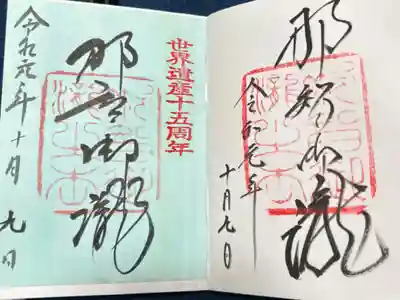 那智御瀧
令和元年
十月九日
世界遺産十五周年
那智御瀧
令和元年十月九日